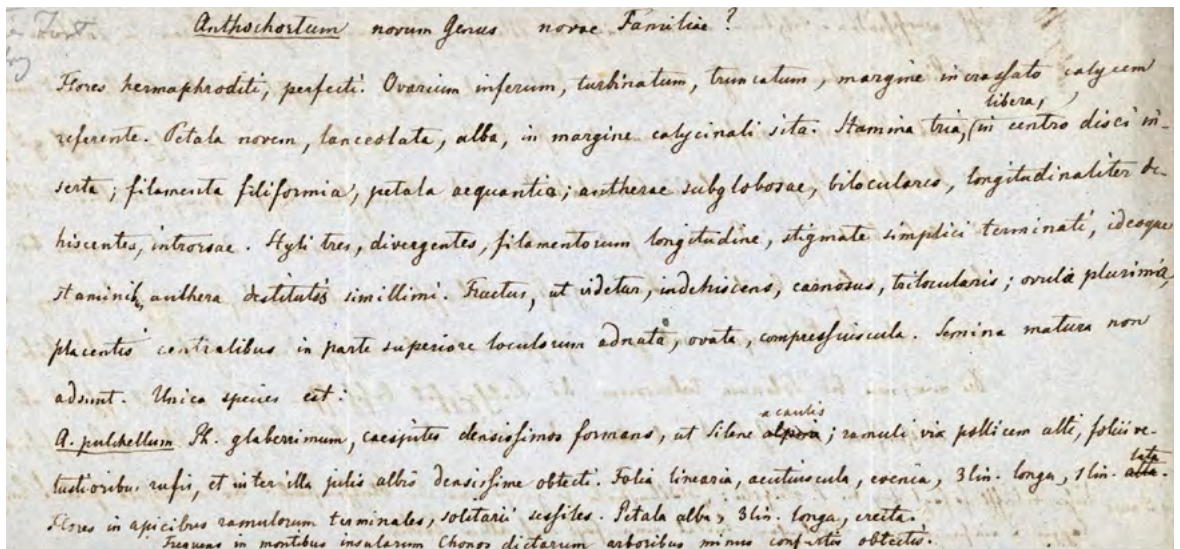 Anthochortum novum Genus novae Familiae?
Flores hermaphroditi, perfecti. Ovarium inferum, turbinatum, truncatum, margine incrassato calycem
libera,
referente. Petala novem, lanceolata, alba, in margine calycinali sita. Stamina tria, (in centro disci in-
serta; filamenta filiformia, petala aequantia; antherae subglobosae, biloculares, longitudinaliter de-
hiscentes, introrsae. Styli tres, divergentes, filamentorum longitudine, stigmate simplici terminati, ideoque
staminib, anthera destitutis simillimi. Fructus, ut videtur, indehiscens, carnosus, trilocularis; ovula plurima,
placentis centralibus in parte superiore loculorum adnata, ovata, compressiuscula. Semina matura non
adsunt. Unica species est:
acaulis
A. pulchellum Ph. glaberrimum, caespites densissimos formans, ut Silene alpina; ramuli vix pollicem alti, foliis ve-
tustioribus rufis, et inter illa pilis albis densissime obtecti. Folia linearia, acutiuscula, evenia, 3 lin. longa, 1 lin. alba.
lata
Flores in apicibus ramulorum terminales, solitarii sessiles. Petala alba, 3 lin. longa, erecta.
Frequens in montibus insularum Chonos dictarum arboribus minus confertis obtectis.